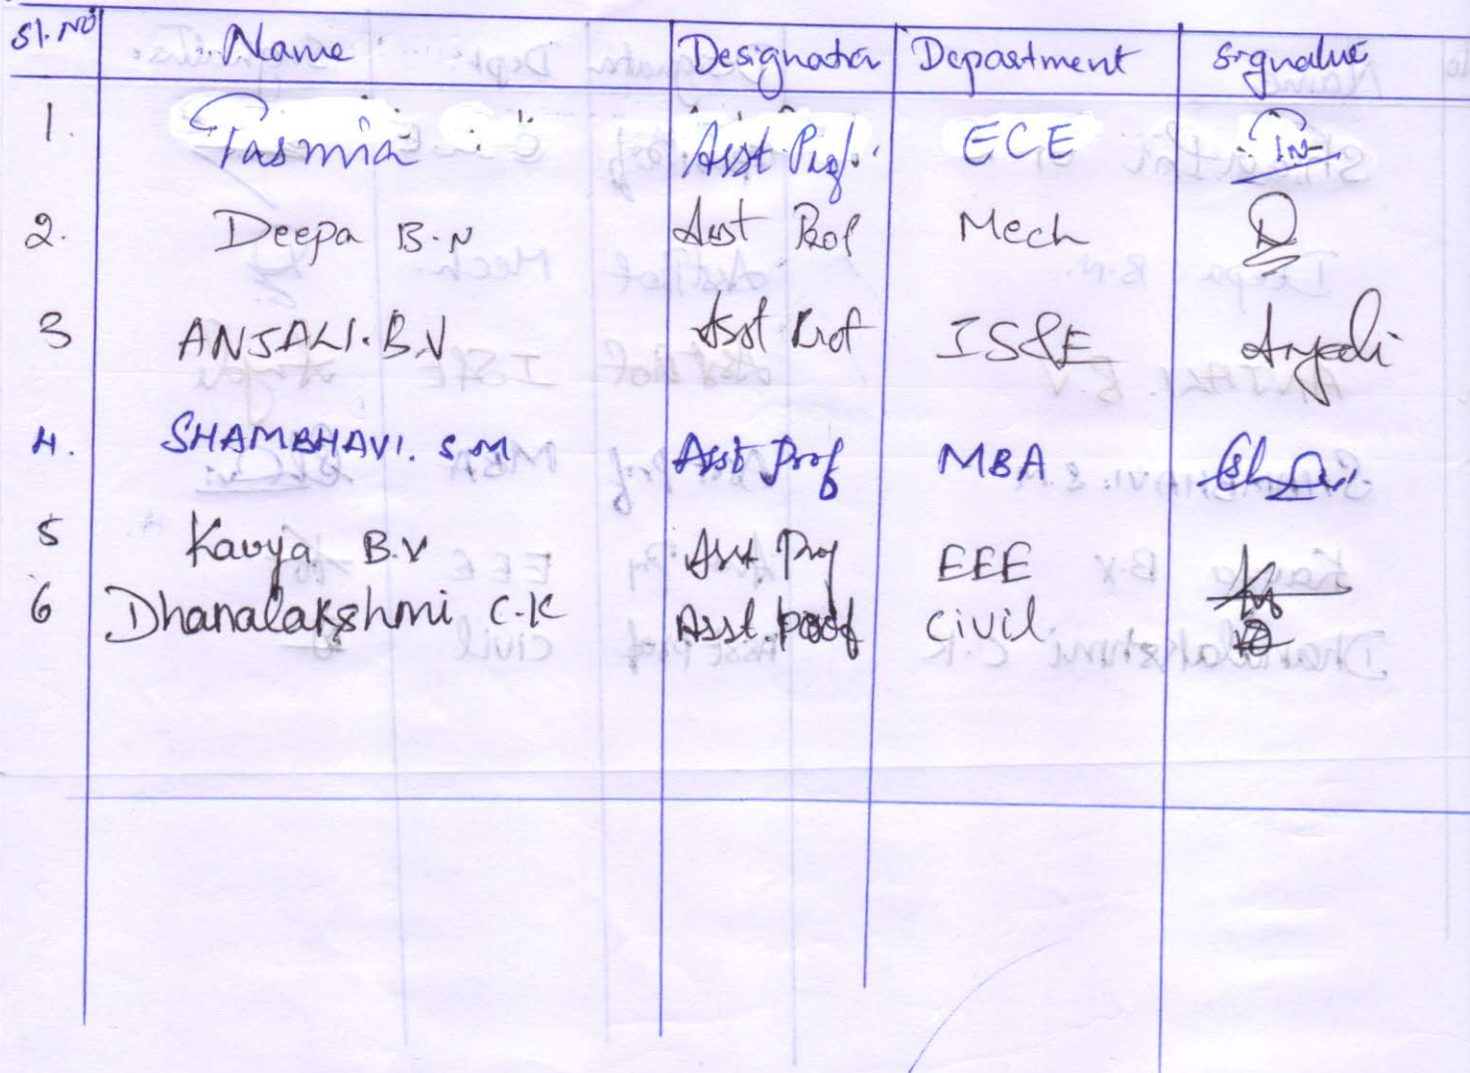 Sl.No Name Designation Department Signature
1. Tasmia Asst Prof. ECE
2. Deepa B.N Asst Prof Mech
3 ANJALI.B.V Asst Prof IS&E Anjali
4. SHAMBHAVI. S.M Asst Prof MBA
5 Kavya B.V Asst Prof EEE
6 Dhanalakshmi C.K Asst. prof civil